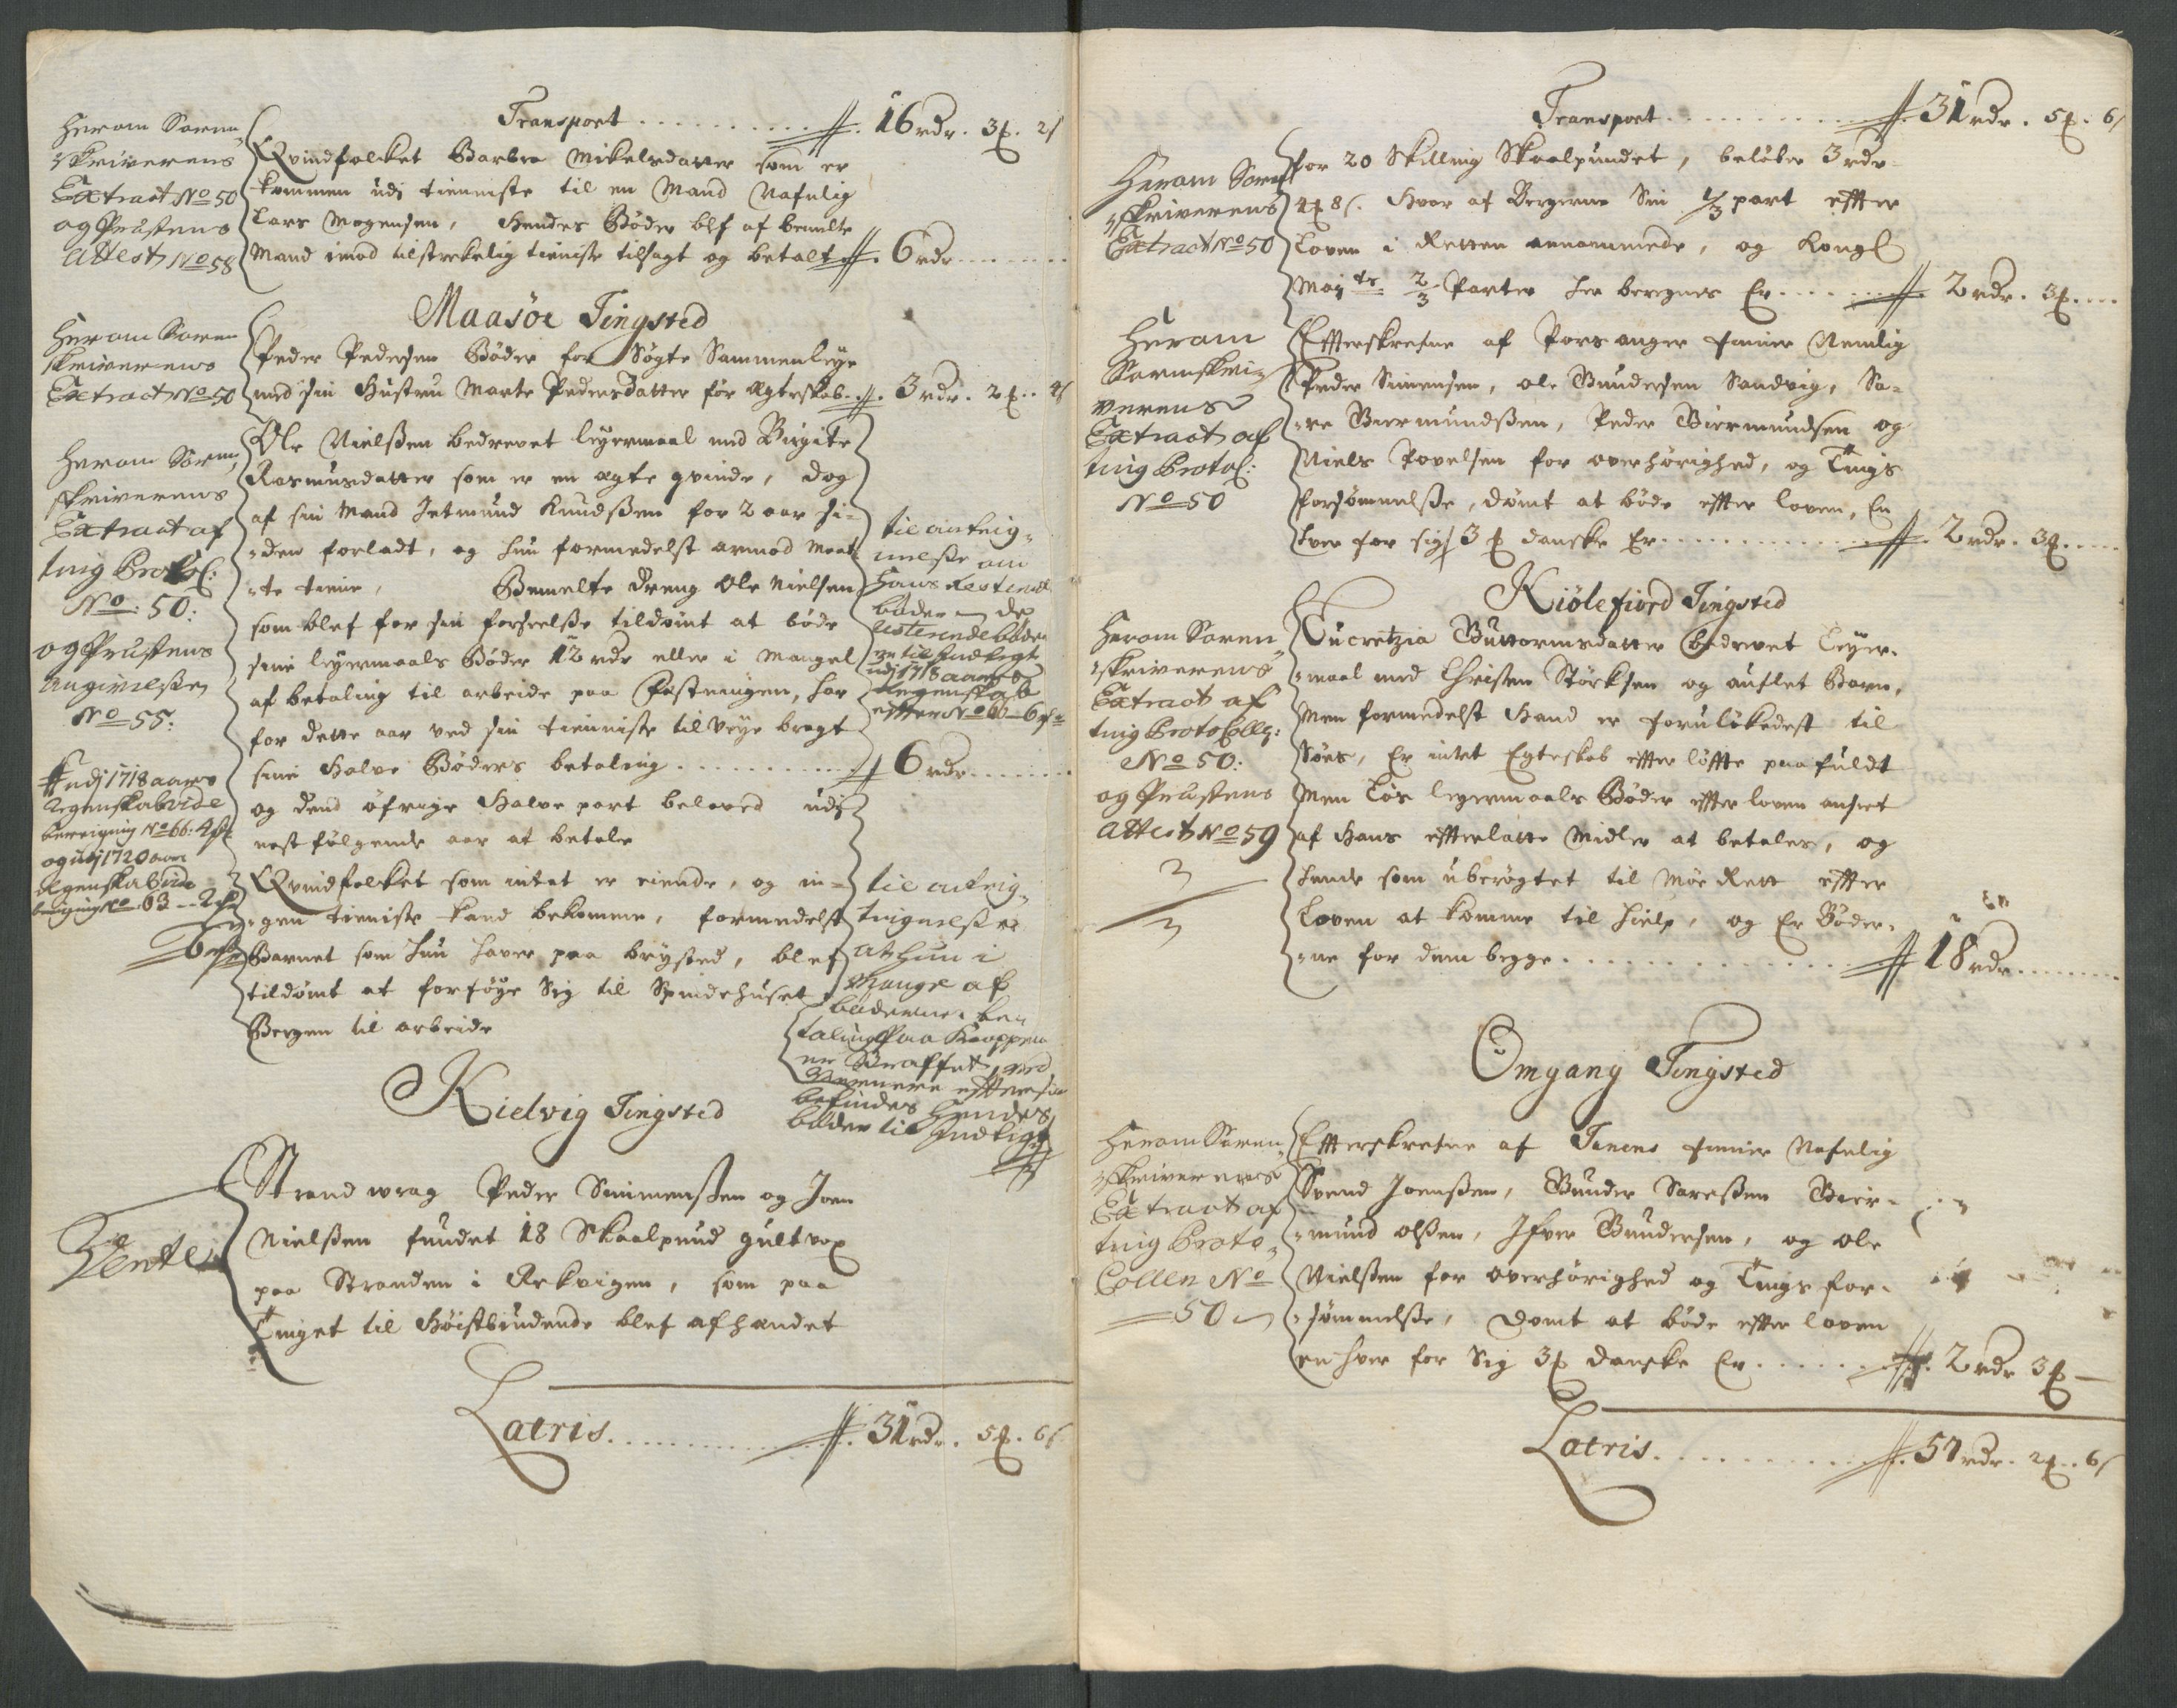 Transport . . . . . . . . . . 16 rdr. 3 ₰. 2 s
Herom Soren„
„skriverens
Extract No 50
og Prustens
Attest No 58
Qvindfolket Barbra Mikelsdatter som er
kommen udj tienniste til en Mand Nafnlig
Lars Mogensen, Hendes Bøder blf af bemelte
Mand imod tilstrekelig tieniste tilsagt og betalt . 6 rdr . . . . .
Maasöe Tingsted
Herom Soren
skriverens
Extract No 50
Peder Pedersen Bøder for Søgte Sammenleye
med sin Hustru Marte Pedersdatter før Egteskab . . 3 rdr. 2 ₰. 4 s
Herom Soren„
skriverens
Extract af
ting Protol:
No: 50:
og Prustens
Angivelse
No 55:
Ole Nielsen bedrevet leyermaal med Birgite
Rasmusdatter som er en egte qvinde, dog
af sin Mand Jetmund Knudsen for 2 aar si„
„den forladt, og hun formedelst armod maat„
„te tiene, Bemelte dreng Ole Nielsen
som blef for sin forseelse tildømt at bøde
sine leyermaals Bøder 12 rdr eller i Mangel
af betaling til arbeide paa Festningen, har
for dette aar ved sin tienniste tilveye bragt
sine Halve Bøders betaling . . . . . . . . . . 6 rdr . . . . .
og dend øfrige Halve part beloved udj
nest følgende aar at betale
til anteig„
nelse om
Hans Resterende
bøder de
resterende bøder
er til Indtegt
udj 1718 aars
Regenskab
efter No 66 6 rdr
udj 1718 aars
Regenskab vide
beregning No 66: 4 rdr
og udj 1720 aars
Regenskab vide
beregning No 63 – 2 rdr
6 rdr
Qvindfolket som intet er eiende, og in„
„gen tieniste kand bekomme, formedelst
Barnet som hun haver paa brysted, blef
tildømt at forføye Sig til Spindehuset i
Bergen til arbeide
til anteig„
tegnelse
at hun i
Mangel af
bødernes be„
taling Paa Kroppen
er Straffet, med
Viidere eftersom
befindes Hendes
bøder til Indtegt
Kielvig Tingsted
Vente
Strand wrag Peder Simmensen og Joen
Nielsen fundet 18 Skaalpund gult vox
paa Stranden i Rekvigen, som paa
Tinget til Høistbiudende blef afhandet
Latris . . . . . . . . . . 31 rdr. 5 ₰. 6 s
Transport . . . . . . . . . . 31 rdr. 5 ₰. 6 s
Herom Soren
„skriverens
Extract No 50
for 20 Skilling Skaalpundet, beløber 3 rdr
4 ₰ 8 s. Hvor af Bergerne Sin 1/3 part effter
Loven i Retten annammede, og Kongl
May ts 2/3 Parter her beregnes Er . . . . . 2 rdr. 3 ₰ . . .
Herom
Sorenskri„
verens
Extract af
ting Protol:
No 50
Effterskrefne af Porsanger finner Nemlig
Peder Simensen, Ole Gundersen Sandvig, Sa„
„re Biermundsen, Peder Biermundsen og
Niels Povelsen for overhørighed, og Tings
forsømmelse, dømt at bøde effter loven, En
hver for sig 3 ₰ danske Er . . . . . . . . . . 2 rdr. 3 ₰ . . .
Kiölefiord Tingsted
Herom Soren„
„skriverens
Extract af
ting Protocoll:
No 50:
og Prustens
Attest No 59
Lucretzia Guttormsdatter bedrevet Leyer„
„maal med Christen Størksen og auflet Barn,
Men formedelst Hand er foruløkedest til
Søes, Er intet Egteskab effter løffte paa fuldt
Men Løs leyermaals Bøder effter loven anseet
af Hans effterlatte Midler at betales, og
hende som uberøgtet til Møe Rett effter
Loven at komme til Hielp, og Er Bøder„
„ne for dem begge . . . . . . . . . . 18 rdr . . . . .
Omgang Tingsted
Herom Soren„
„skriverens
Extract af
ting Proto„
Collen No
50
Effterskrefne af Tanens finner Nafnlig
Svend Joensen, Gunder Saresen Bier„
„mund Olsen, Ifver Gundersen, og Ole
Nielsen for overhørighed og Tings for„
„sømmelse, Dømt at bøde effter loven
en hver for Sig 3 ₰ danske Er . . . . . . 2 rdr 3 ₰ —
Latris . . . . . . . . . . 57 rdr. 2 ₰. 6 s